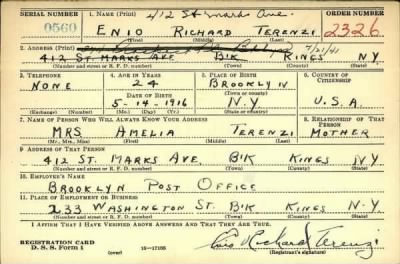 SERIAL NUMBER 1. NAME (Print) 412 St marks Ave. ORDER NUMBER
0560 ENIO RICHARD TERENZI 2326
(First) (Middle) (Last)
2. ADDRESS (Print) 7/21/41
412 ST. MARKS AVE B'K KINGS N.Y.
(Number and street or R. F. D. number) (Town) (County) (State)
3. TELEPHONE 4. AGE IN YEARS 5. PLACE OF BIRTH 6. COUNTRY OF CITIZENSHIP
NONE 24 BROOKLYN
DATE OF BIRTH (Town or county)
5-14-1916 N.Y. U.S.A.
(Exchange) (Number) (Mo.) (Day) (Yr.) (State or country)
7. NAME OF PERSON WHO WILL ALWAYS KNOW YOUR ADDRESS 8. RELATIONSHIP OF THAT PERSON
MRS AMELIA TERENZI MOTHER
(Mr., Mrs., Miss) (First) (Middle) (Last)
9. ADDRESS OF THAT PERSON
412 ST. MARKS AVE. B'K KINGS N.Y.
(Number and street or R. F. D. number) (Town) (County) (State)
10. EMPLOYER'S NAME
BROOKLYN POST OFFICE
11. PLACE OF EMPLOYMENT OR BUSINESS
233 WASHINGTON ST. B'K KINGS N.Y.
(Number and street or R. F. D. number) (Town) (County) (State)
I AFFIRM THAT I HAVE VERIFIED ABOVE ANSWERS AND THAT THEY ARE TRUE.
REGISTRATION CARD
D. S. S. Form 1 (over) 16—17105 Enio Richard Terenzi
(Registrant's signature)